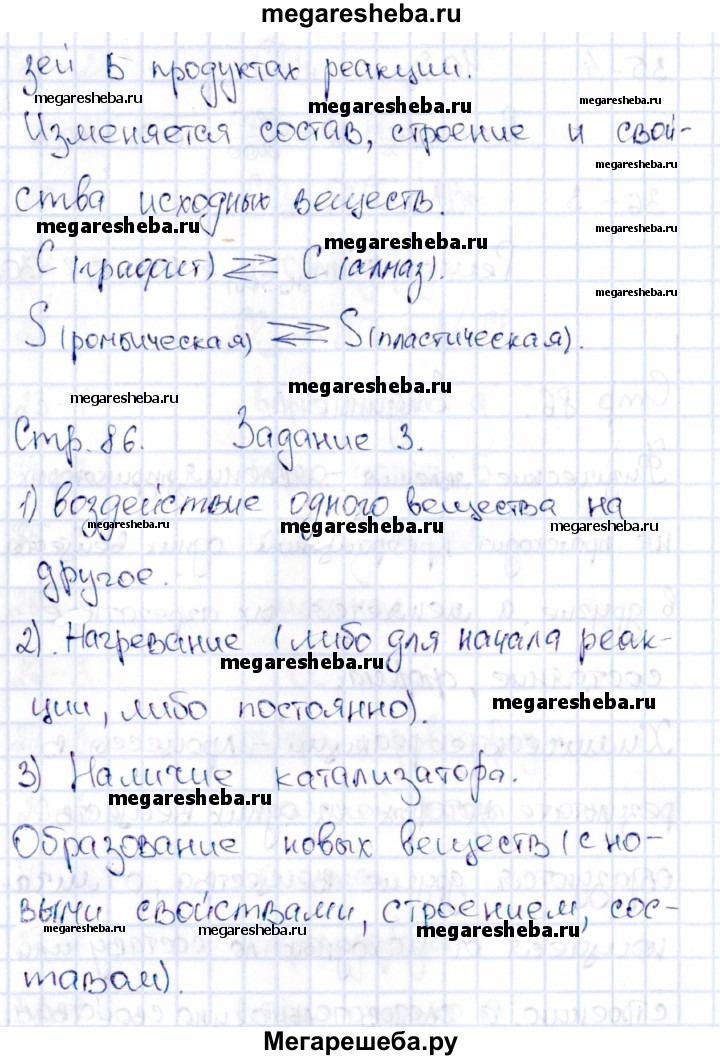 megaresheba.ru
зей в продуктах реакции.
megaresheba.ru megaresheba.ru megaresheba.ru
Изменяется состав, строение и свой-
megaresheba.ru
ства исходных веществ.
megaresheba.ru megaresheba.ru
C (графит) ⇄ C (алмаз).
megaresheba.ru
S (ромбическая) ⇄ S (пластическая).
megaresheba.ru
megaresheba.ru
Стр. 86. Задание 3.
1) воздействие одного вещества на
megaresheba.ru megaresheba.ru megaresheba.ru
другое.
2). Нагревание (либо для начала реак-
megaresheba.ru
ции, либо постоянно).
megaresheba.ru
3) Наличие катализатора.
megaresheba.ru
Образование новых веществ (с но-
выми свойствами, строением, сос-
megaresheba.ru megaresheba.ru
тавом).
Мегарешеба.ру